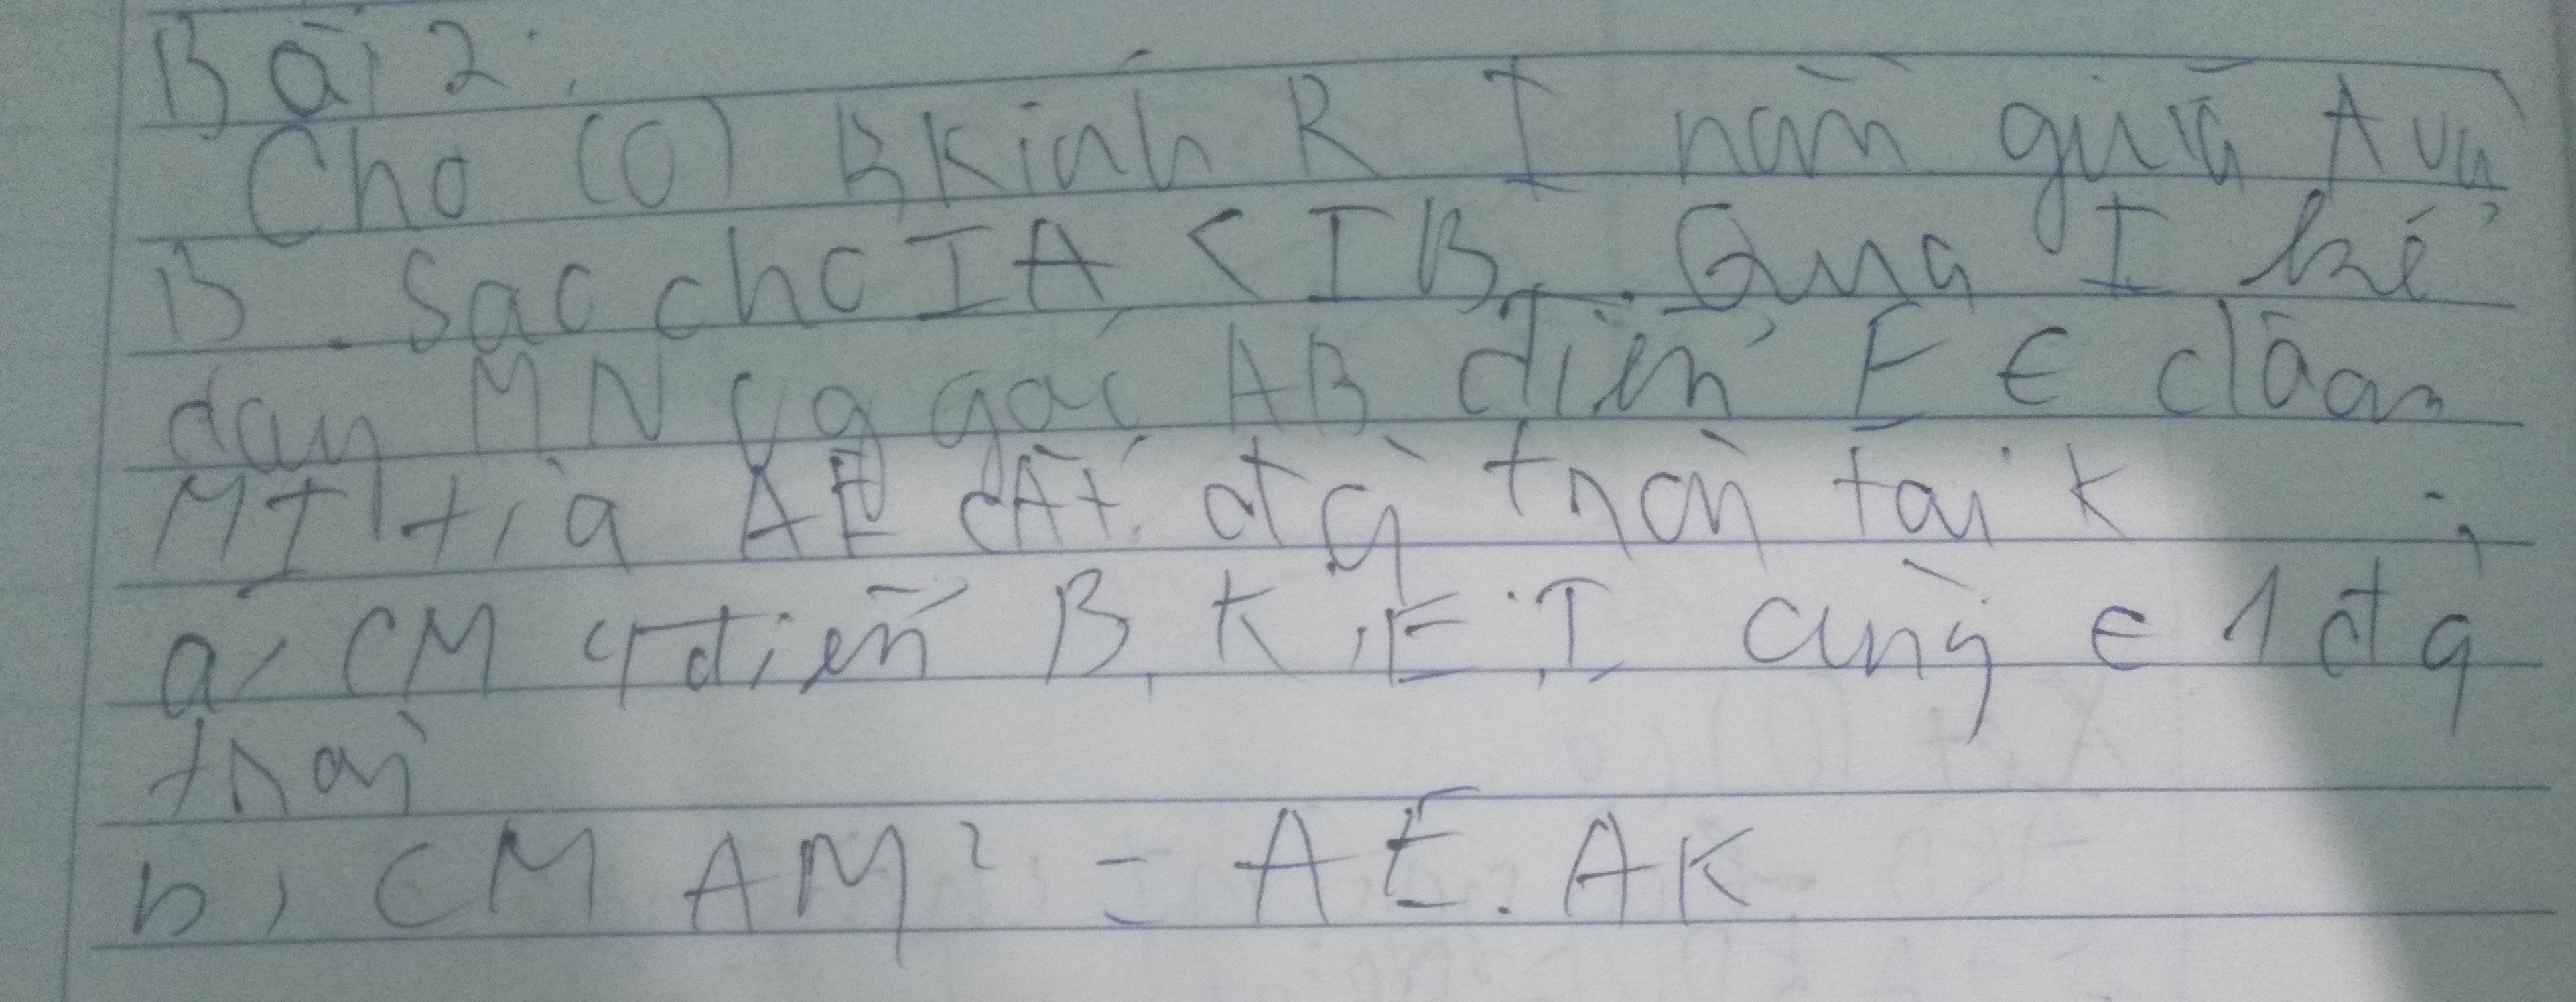 Bài 2:
Cho (O) Bkính R I nằm giữa A và
B. Sao cho IA < IB. Qua I kẻ
dây MN vg góc AB điểm E ∈ đoạn
MI tia AE cắt đg tròn tại K
a, CM 4 điểm B, K, E, I cùng ∈ 1 đg
tròn
b, CM AM² = AE.AK